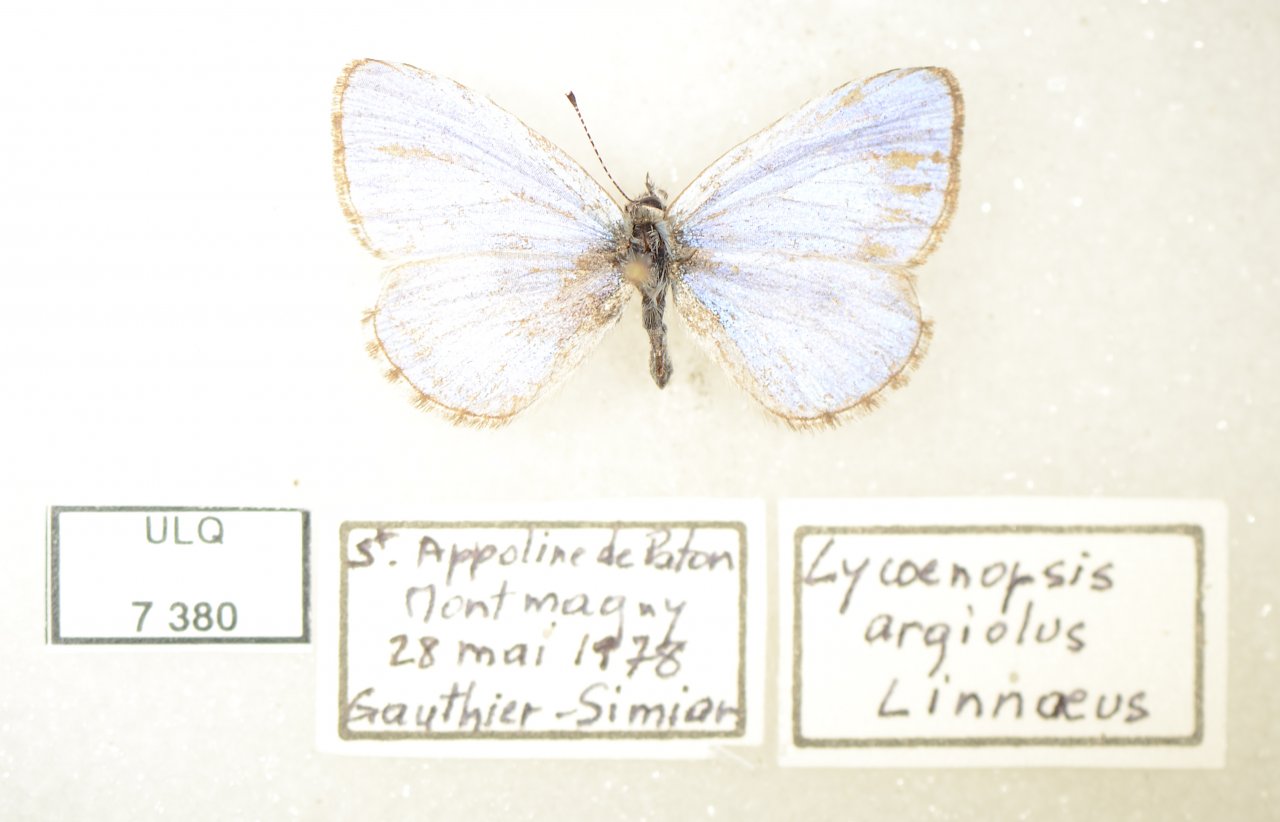 ULQ
7 380
St. Appoline de Paton
Montmagny
28 mai 1978
Gauthier-Simian
Lycoenopsis
argiolus
Linnaeus